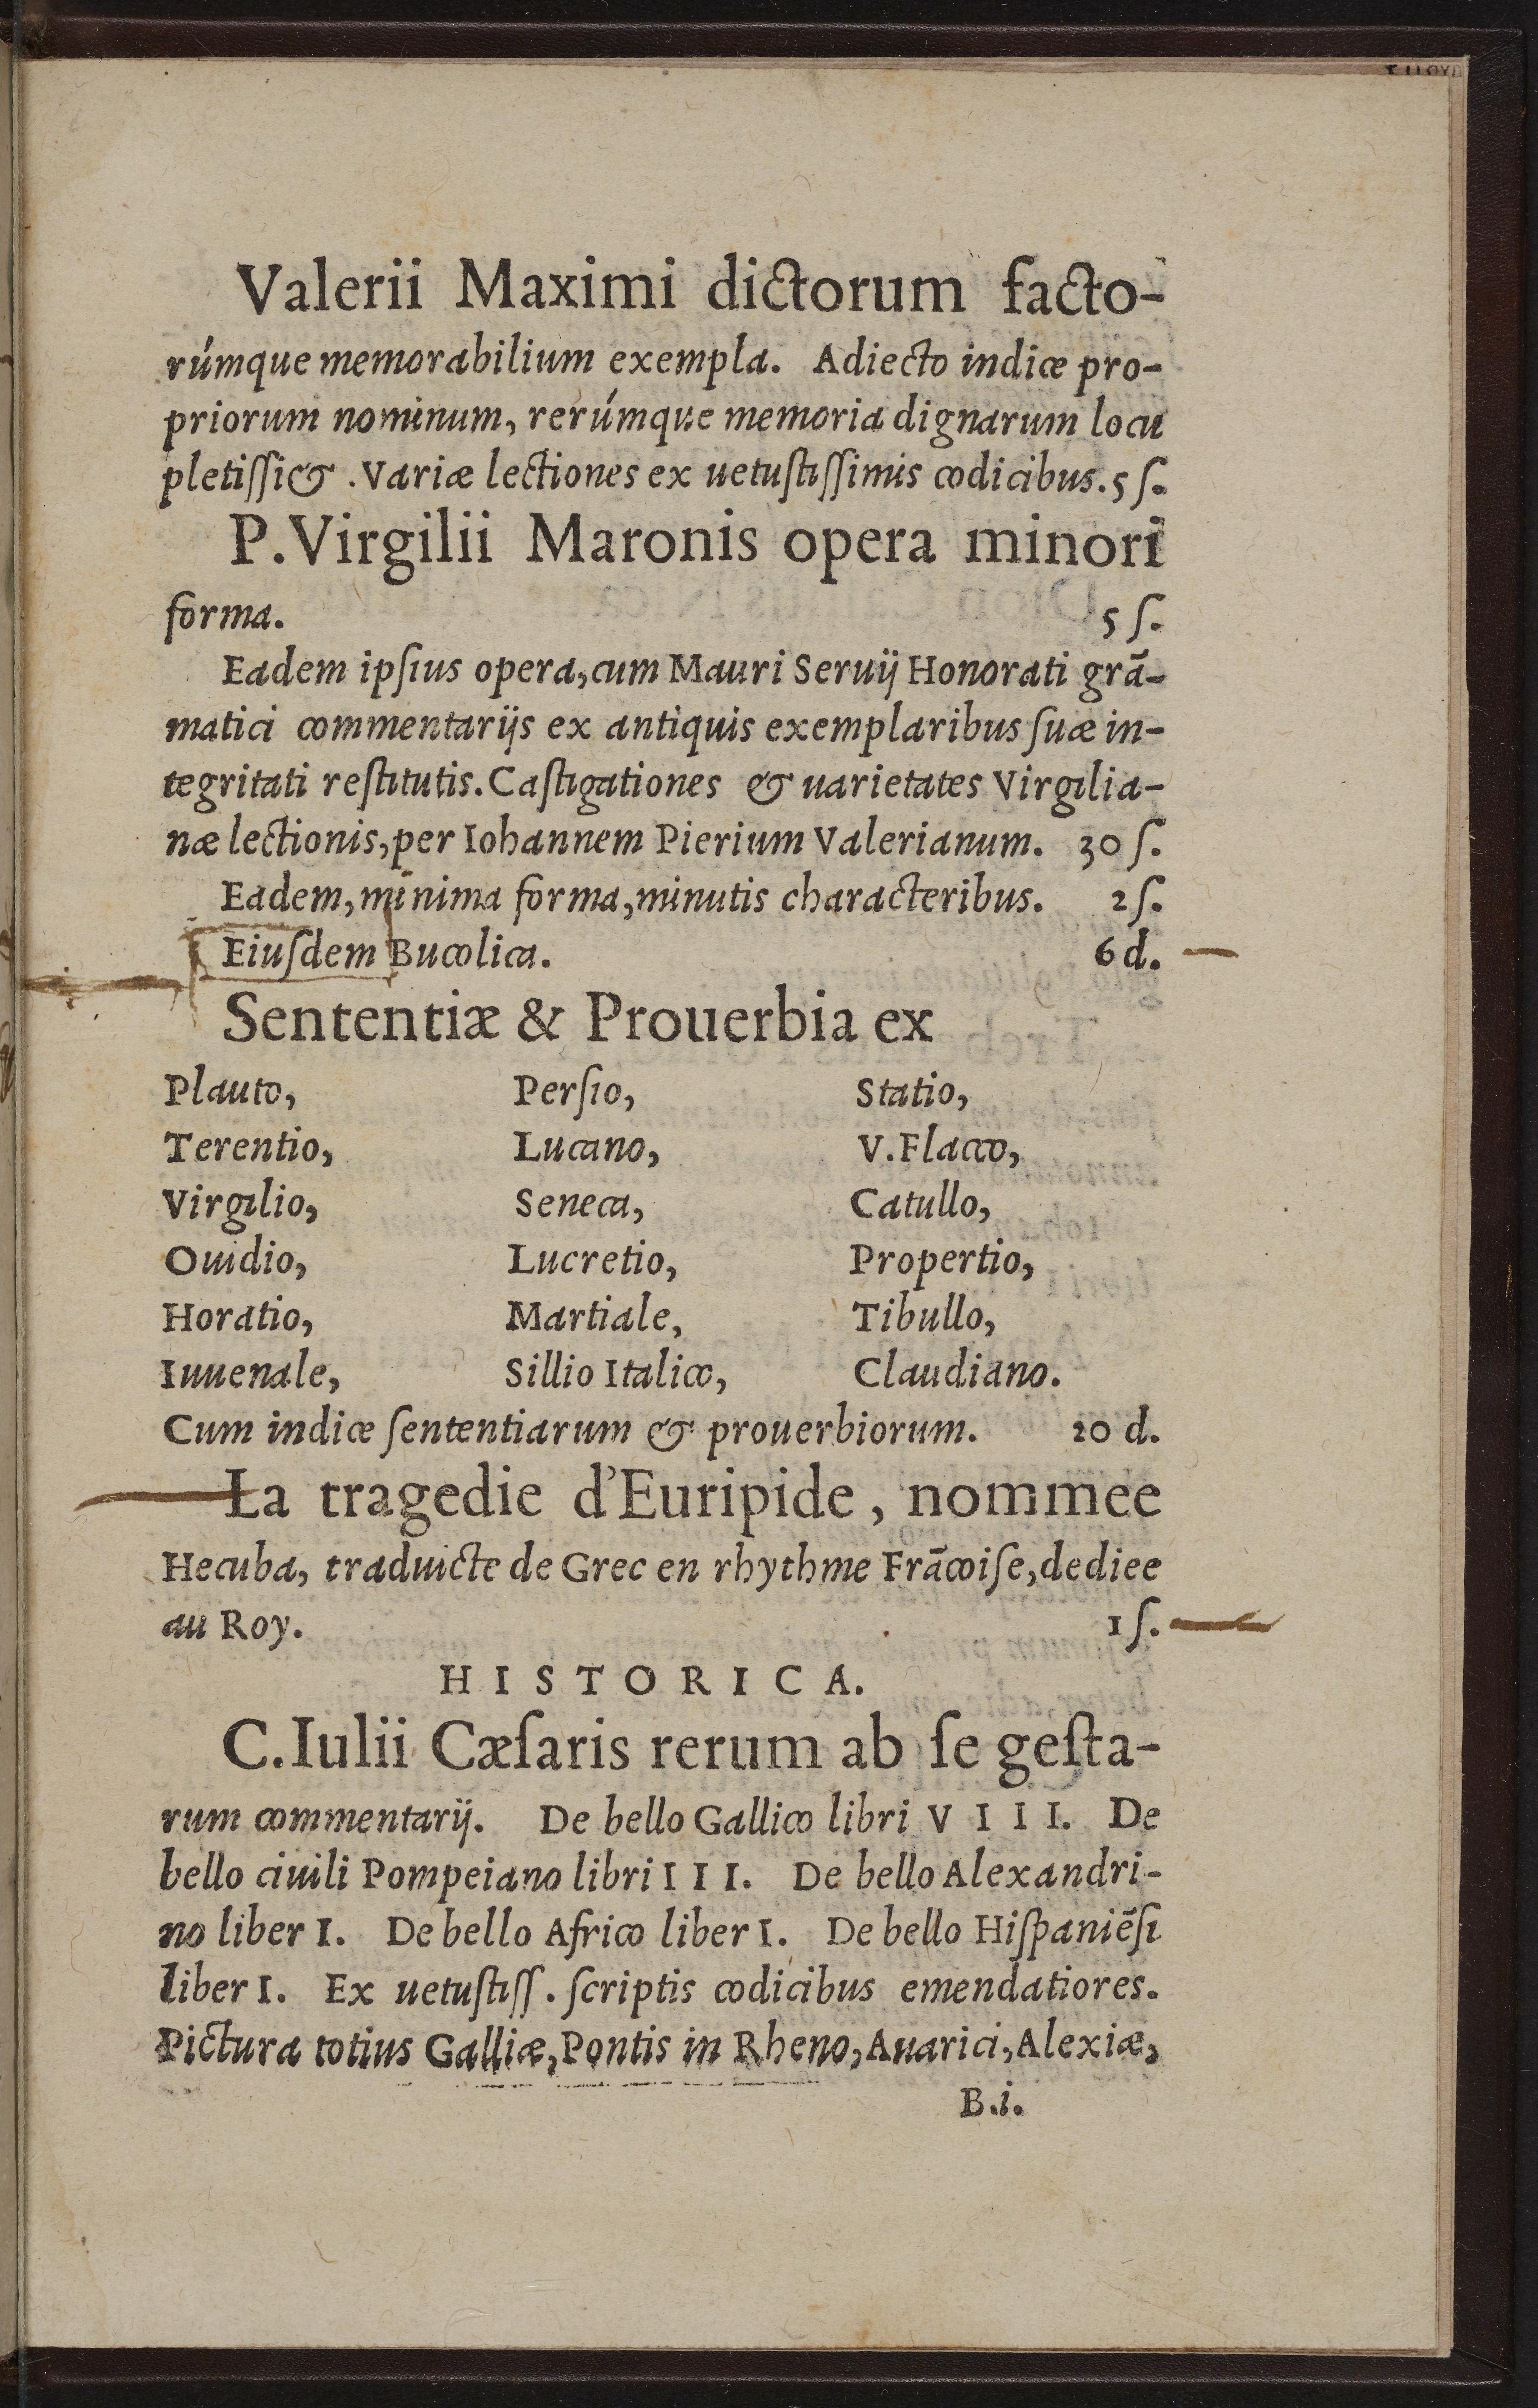 Valerii Maximi dictorum facto-
rúmque memorabilium exempla. Adiecto indice pro-
priorum nominum, rerúmque memoria dignarum locu
pletiſſi& . Variæ lectiones ex uetuſtiſſimis codicibus. 5 ſ.
P. Virgilii Maronis opera minori
forma. 5 ſ.
Eadem ipſius opera, cum Mauri Seruij Honorati grā-
matici commentarijs ex antiquis exemplaribus ſuæ in-
tegritati reſtitutis. Caſtigationes & uarietates Virgilia-
næ lectionis, per Iohannem Pierium Valerianum. 30 ſ.
Eadem, minima forma, minutis characteribus. 2 ſ.
Eiuſdem Bucolica. 6 d.
Sententiæ & Prouerbia ex
Plauto, Perſio, Statio,
Terentio, Lucano, V. Flacco,
Virgilio, Seneca, Catullo,
Ouidio, Lucretio, Propertio,
Horatio, Martiale, Tibullo,
Iuuenale, Sillio Italico, Claudiano.
Cum indice ſententiarum & prouerbiorum. 20 d.
La tragedie d'Euripide, nommee
Hecuba, traduicte de Grec en rhythme Frācoiſe, dediee
au Roy. 1 ſ.
HISTORICA.
C. Iulii Cæſaris rerum ab ſe geſta-
rum commentarij. De bello Gallico libri VIII. De
bello ciuili Pompeiano libri III. De bello Alexandri-
no liber I. De bello Africo liber I. De bello Hiſpaniēſi
liber I. Ex uetuſtiſſ. ſcriptis codicibus emendatiores.
Pictura totius Galliæ, Pontis in Rheno, Auarici, Alexiæ,
B.i.